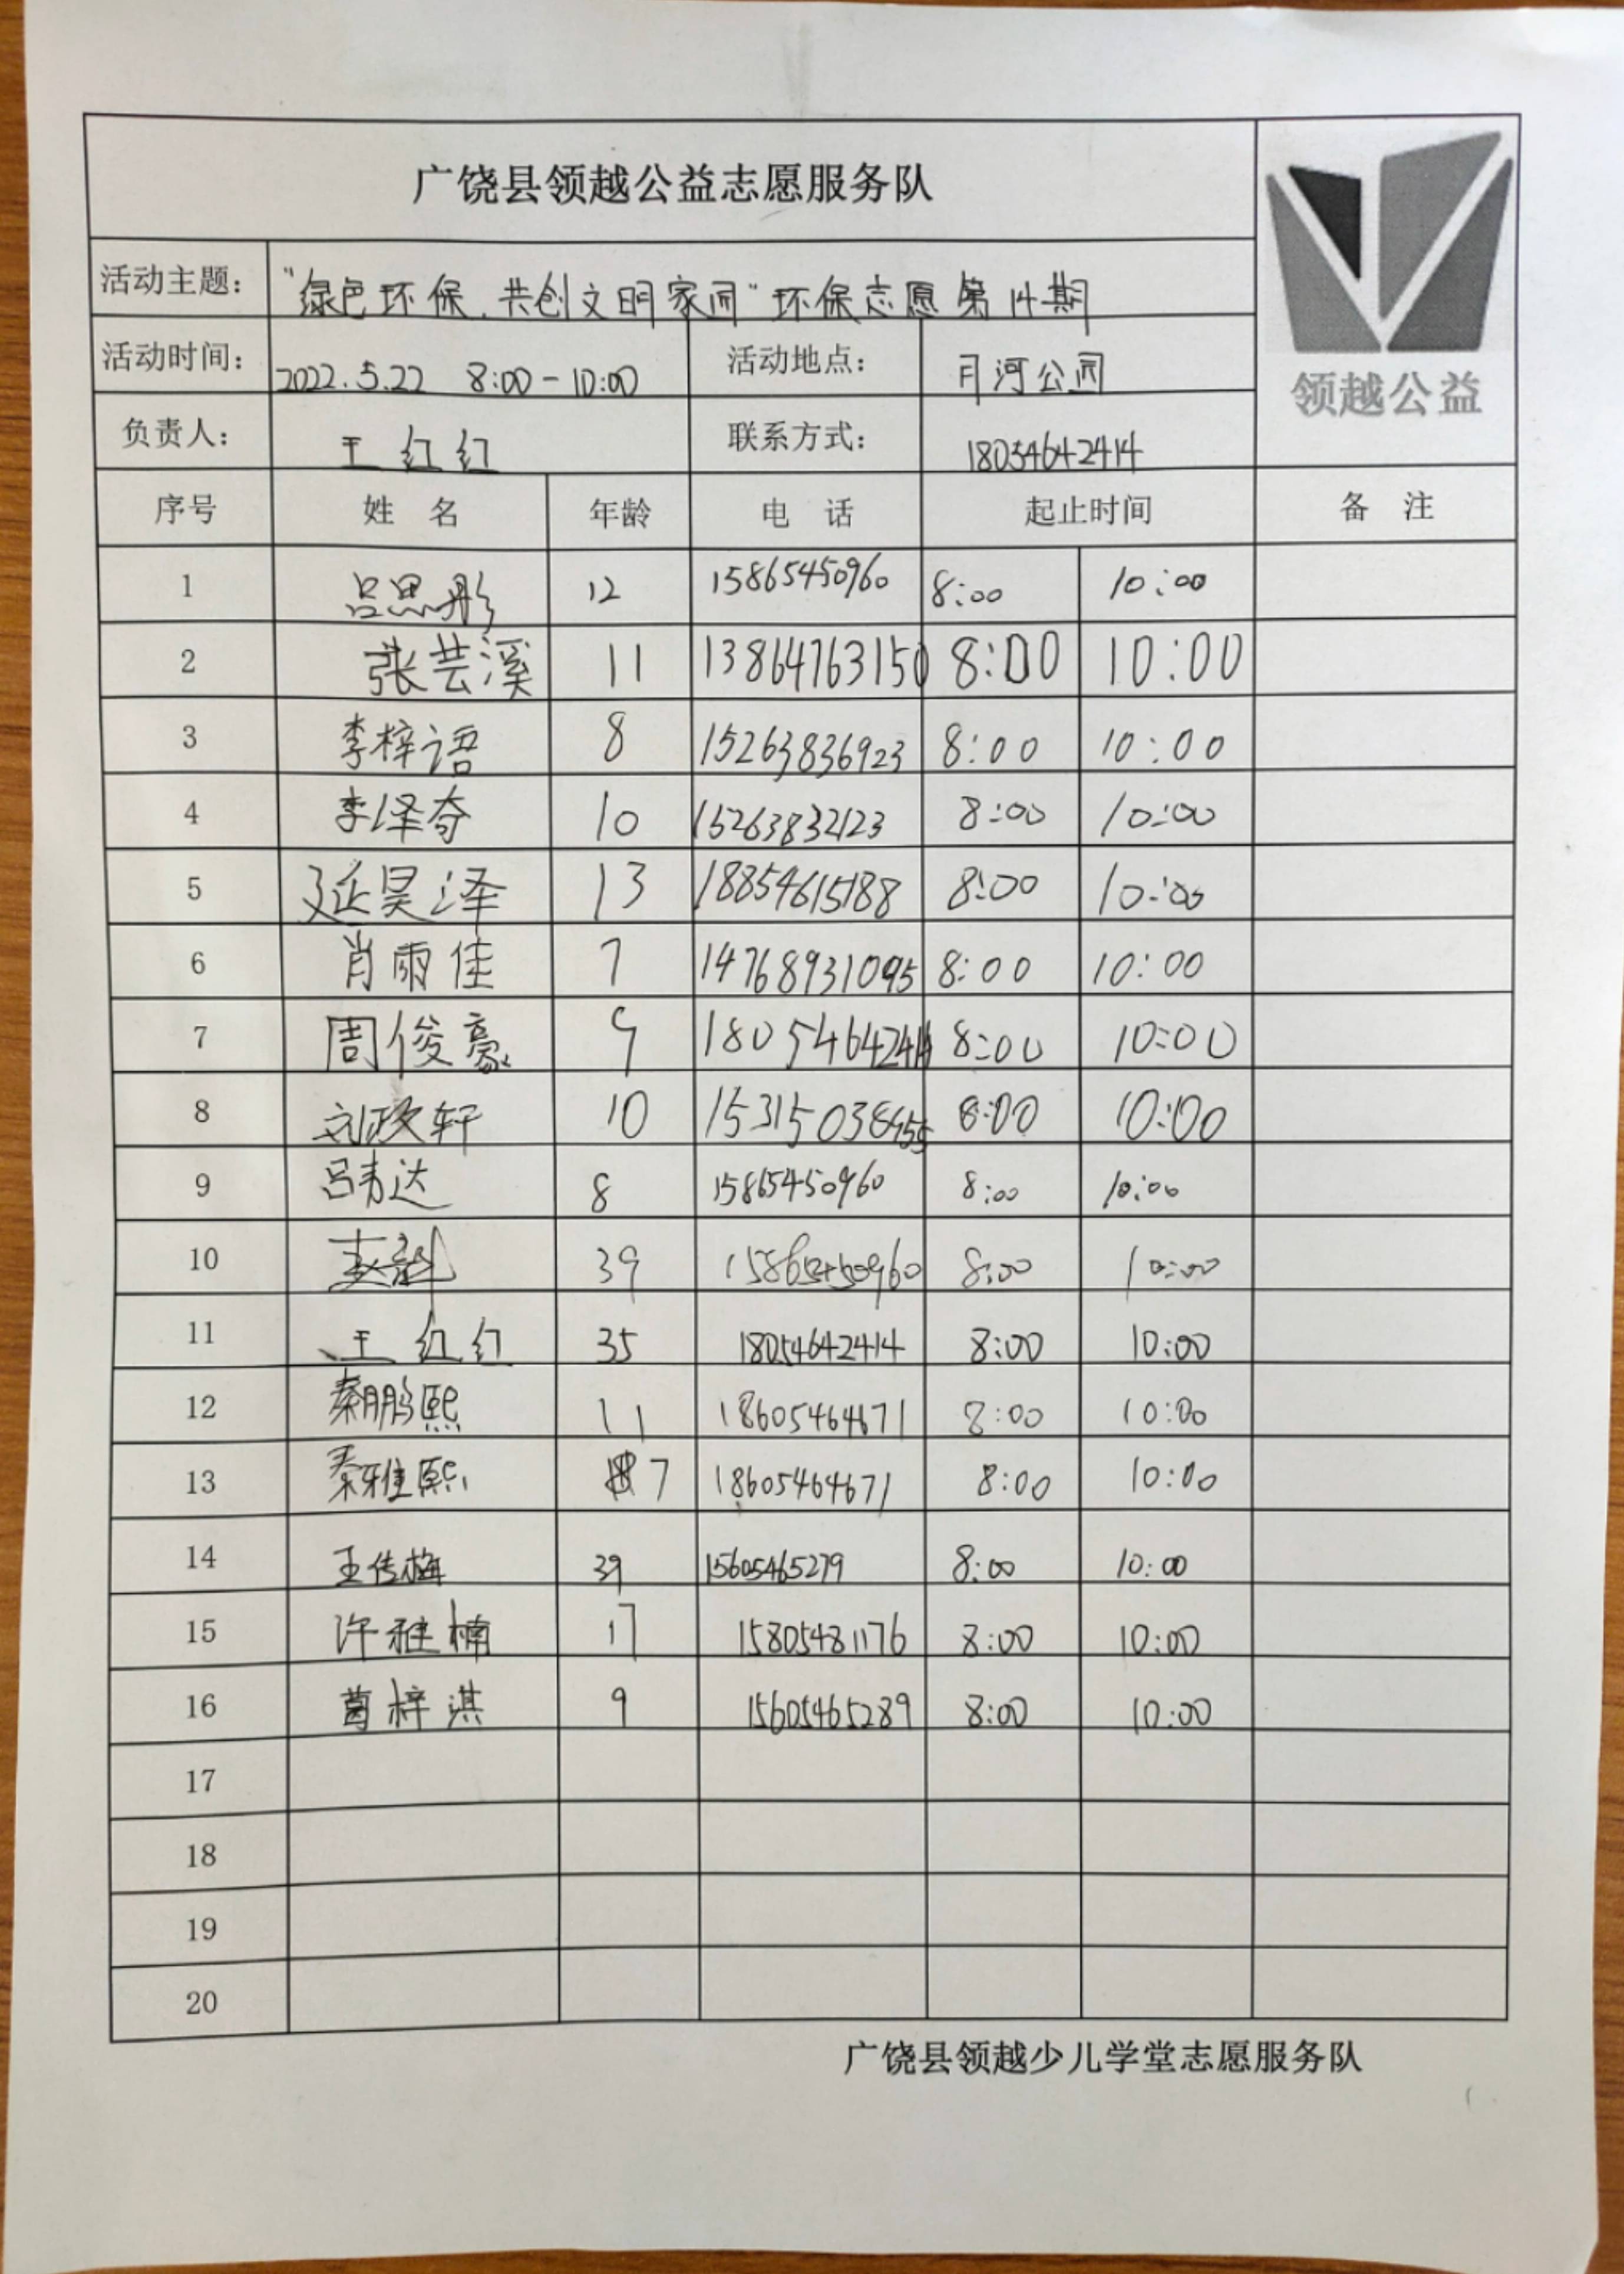 广饶县领越公益志愿服务队
领越公益
活动主题： “绿色环保.共创文明家园”环保志愿第14期
活动时间： 2022.5.22 8:00-10:00 活动地点： 月河公园
负责人： 王红红 联系方式： 18054642414
序号 姓 名 年龄 电 话 起止时间 备 注
1 吕思彤 12 15865450960 8:00 10:00
2 张芸溪 11 13864763150 8:00 10:00
3 李梓语 8 15263836923 8:00 10:00
4 李泽奇 10 15263832123 8:00 10:00
5 延昊泽 13 18854615188 8:00 10:00
6 肖雨佳 7 14768931095 8:00 10:00
7 周俊豪 9 18054642414 8:00 10:00
8 刘政轩 10 8:00 10:00
9 吕韦达 8 15865450960 8:00 10:00
10 39 15865450960 8:00 10:00
11 王红红 35 18054642414 8:00 10:00
12 秦鹏熙 11 18605464671 8:00 10:00
13 秦雅熙 7 18605464671 8:00 10:00
14 王传梅 39 15605465279 8:00 10:00
15 许雅楠 17 15805481176 8:00 10:00
16 葛梓淇 9 15605465289 8:00 10:00
17
18
19
20
广饶县领越少儿学堂志愿服务队